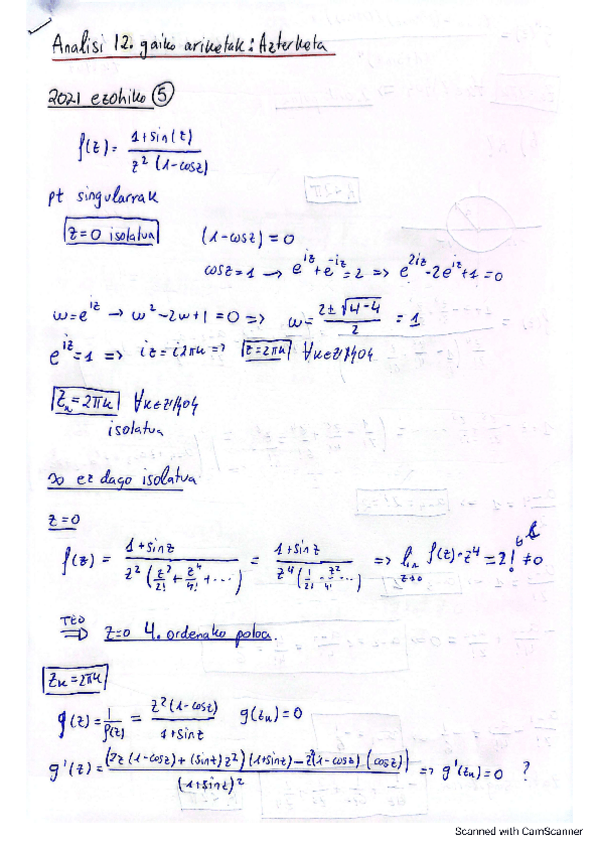 Analisi 12. gaiko ariketak: Azterketa
2021 ezohiko ⑤
f(z) = 1+sin(z) / z² (1-cosz)
pt singularrak
z=0 isolatua (1-cosz) = 0
cosz=1 → e^{iz}+e^{-iz}=2 => e^{2iz}-2e^{iz}+1=0
w=e^{iz} → w²-2w+1=0 => w= 2±√4-4 / 2 = 1
e^{iz}=1 => iz=i2πk => z=2πk ∀k∈Z\{0}
Z_k=2πk ∀k∈Z\{0}
isolatua
∞ ez dago isolatua
z=0
f(z) = 1+sinz / z² (z²/2! + z⁴/4! + ...) = 1+sinz / z⁴ (1/2! - z²/4! ...) => lim z→0 f(z)·z⁴ = 2! ≠0
TEO => z=0 4. ordenako poloa.
Z_k=2πk
g(z) = 1/f(z) = z² (1-cosz) / 1+sinz g(z_k)=0
g'(z) = (2z (1-cosz) + (sinz) z²) (1+sinz) - z²(1-cosz) (cosz) / (1+sinz)² => g'(z_k)=0 ?
Scanned with CamScanner